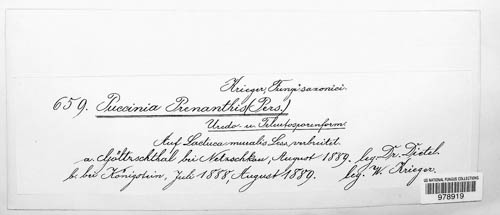 Krieger, Fungi saxonici.
659. Puccinia Prenanthis (Pers.)
Uredo- u. Teleutosporenform.
Auf Lactuca muralis Less, verbreitet.
a. Göltzschthal bei Netzschkau, August 1889. leg. Dr. Dietel.
b. bei Königstein, Juli 1888, August 1889. leg. W. Krieger.
US NATIONAL FUNGUS COLLECTIONS
978919